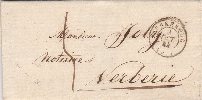 Monsieur Joly
Notaire
Verberie